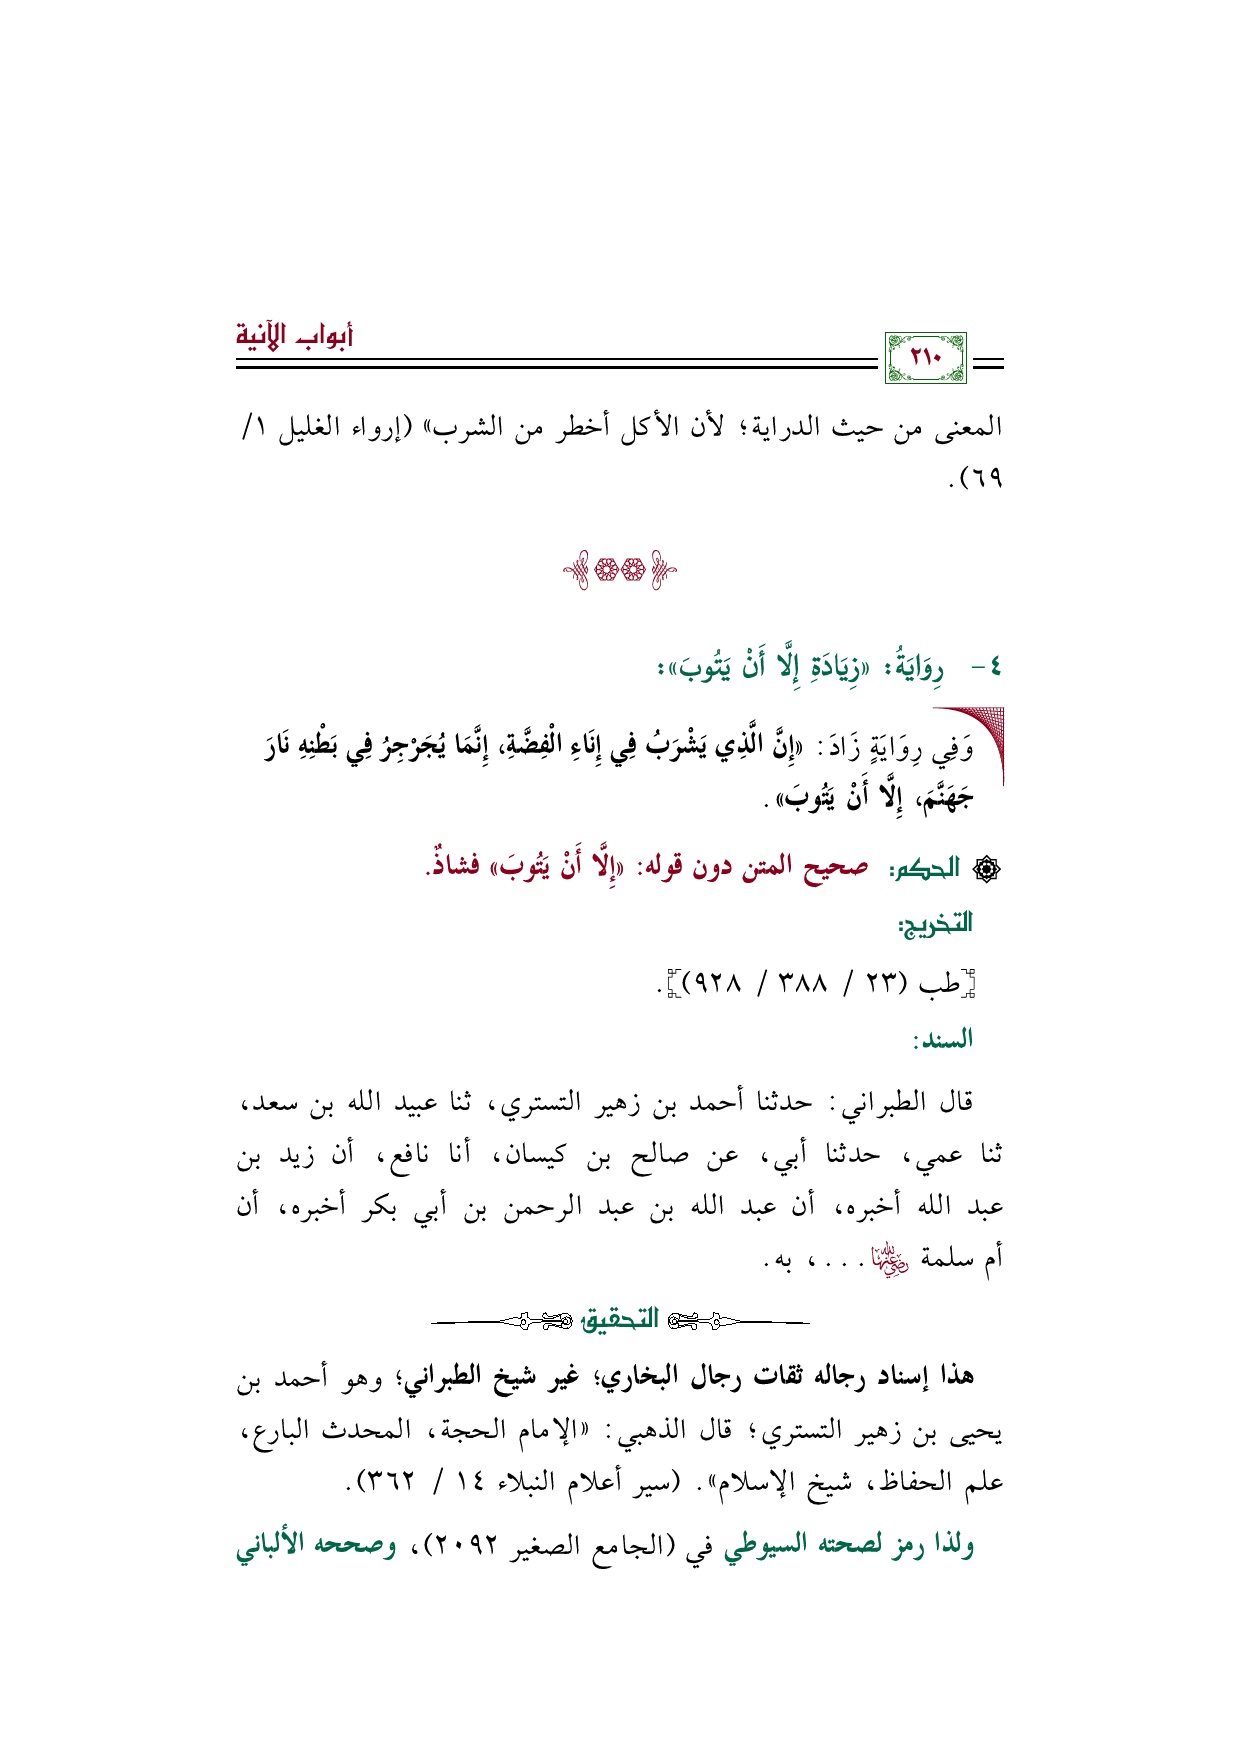 أبواب الآنية
٢١٠
المعنى من حيث الدراية؛ لأن الأكل أخطر من الشرب» (إرواء الغليل ١/
٦٩).
٤- رِوَايَةُ: «زِيَادَةِ إِلَّا أَنْ يَتُوبَ»:
وَفِي رِوَايَةٍ زَادَ: «إِنَّ الَّذِي يَشْرَبُ فِي إِنَاءِ الْفِضَّةِ، إِنَّمَا يُجَرْجِرُ فِي بَطْنِهِ نَارَ
جَهَنَّمَ، إِلَّا أَنْ يَتُوبَ».
الحكم: صحيح المتن دون قوله: «إِلَّا أَنْ يَتُوبَ» فشاذٌ.
التخريج:
[طب (٢٣ / ٣٨٨ / ٩٢٨)].
السند:
قال الطبراني: حدثنا أحمد بن زهير التستري، ثنا عبيد الله بن سعد،
ثنا عمي، حدثنا أبي، عن صالح بن كيسان، أنا نافع، أن زيد بن
عبد الله أخبره، أن عبد الله بن عبد الرحمن بن أبي بكر أخبره، أن
أم سلمة رضي الله عنها...، به.
التحقيق
هذا إسناد رجاله ثقات رجال البخاري؛ غير شيخ الطبراني؛ وهو أحمد بن
يحيى بن زهير التستري؛ قال الذهبي: «الإمام الحجة، المحدث البارع،
علم الحفاظ، شيخ الإسلام». (سير أعلام النبلاء ١٤ / ٣٦٢).
ولذا رمز لصحته السيوطي في (الجامع الصغير ٢٠٩٢)، وصححه الألباني